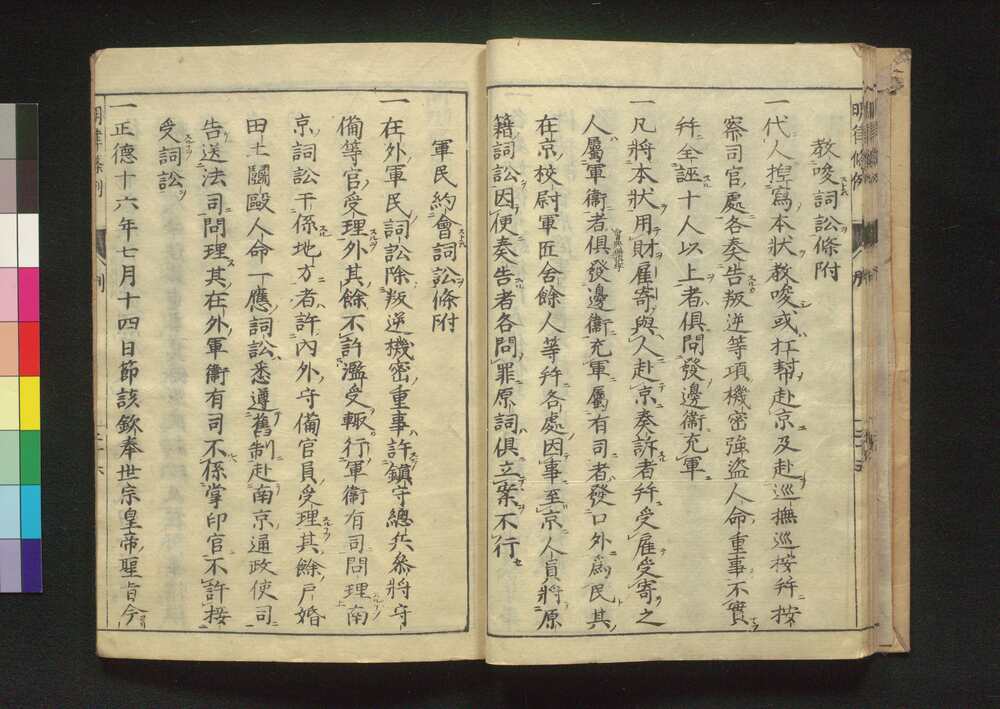 教唆詞訟條附
一代人揑寫本狀教唆或扛幇赴京及赴巡撫巡按幷按
察司官處各奏告叛逆等項機密強盜人命重事不實
幷全誣十人以上者俱問發邊衞充軍
一凡將本狀用財雇寄與人赴京奏訴者幷受雇受寄之
人屬軍衞者俱發邊衞充軍屬有司者發口外爲民其
在京校尉軍匠舍餘人等幷各處因事至京人員將原
籍詞訟因便奏告者各問罪原詞俱立案不行
軍民約會詞訟條附
一在外軍民詞訟除叛逆機密重事許鎮守總兵叅將守
備等官受理外其餘不許濫受輙行軍衞有司問理南
京詞訟干係地方者許內外守備官員受理其餘戶婚
田土鬭毆人命一應詞訟悉遵舊制赴南京通政使司
告送法司問理其在外軍衞有司不係掌印官不許接
受詞訟
一正德十六年七月十四日節該欽奉世宗皇帝聖旨今